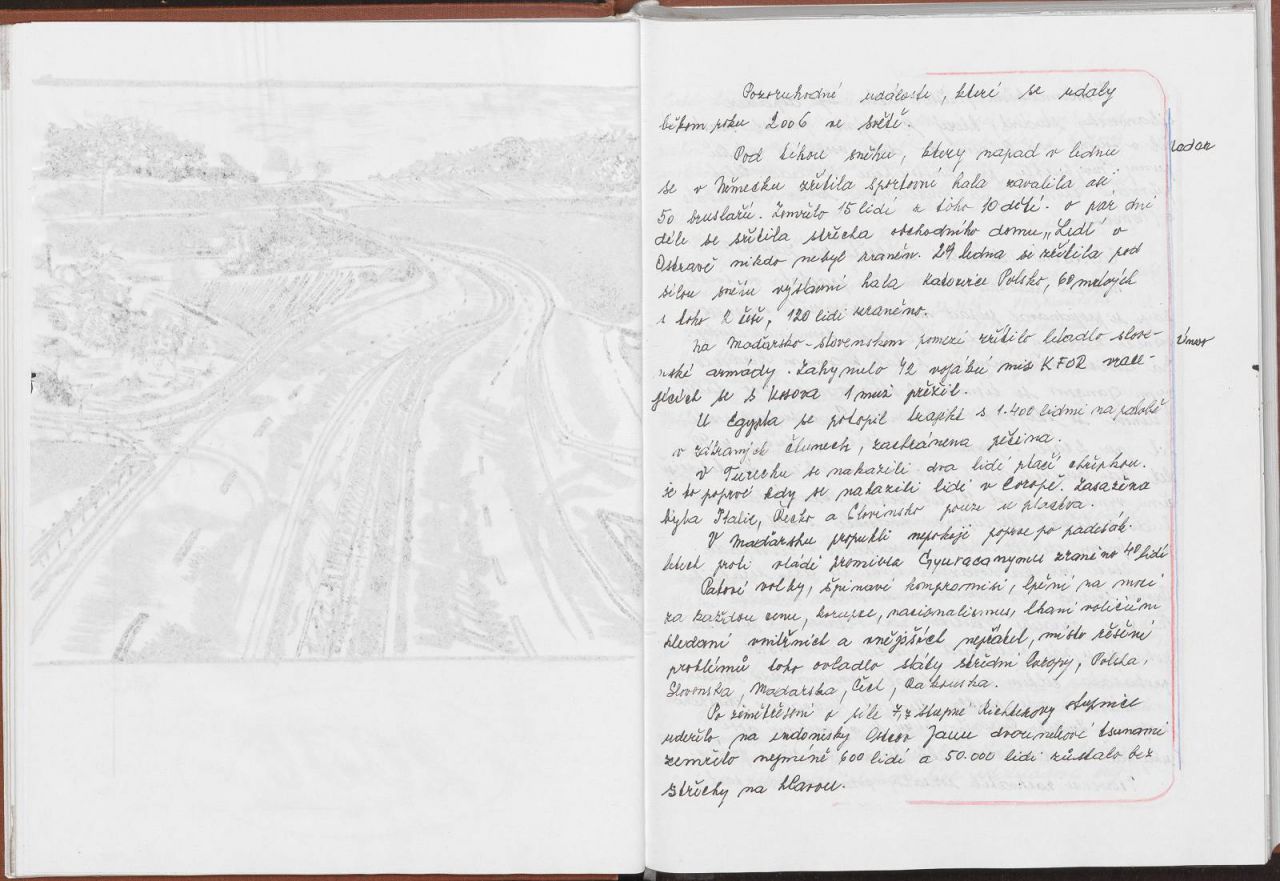 Pozoruhodné události, které se udaly
během roku 2006 ve světě.
Pod tíhou sněhu, který napad v lednu
leden
se v Německu zřítila sportovní hala zavalila asi
50 bruslařů. Zemřelo 15 lidí z toho 10 dětí. o pár dní
déle se zřítila střecha obchodního domu „Lidl" v
Ostravě nikdo nebyl zraněn. 29 ledna se zřítila pod
sílou sněhu výstavní hala Katovice Polsko, 60 mrtvých
z toho 2 češi, 120 lidí zraněno.
na Maďarsko-slovenskom pomezí zřítilo letadlo slove-
Únor
nské armády. Zahynulo 42 vojáků mise KFOR vrace-
jících se s Kosova 1 muž přežil.
U Egypta se potopil trajekt s 1.400 lidmi na palubě
v záchraných člunech, zachráněna
V Turecku se nakazili dva lidí ptačí chřipkou.
je to poprvé kdy se nakazili lidí v Evropě. Zasažena
byla Italie, Řecko a Slovinsko pouze u ptactva.
V Maďarsku propukli nepokoji poprve po padesát.
letech proti vládě premiera Gyurcanymu zraněno 40 lidí
Patové volby, špinavé kompromisi, lpění na moci
za každou cenu, korupce, nacionalismus, lhaní voličům
hledaní vnitřních a vnějších nepřátel, místo řešení
problémů toto ovladlo státy střední Evropy, Polska,
Slovenska, Maďarska, Čech, Rakouska.
Po zemětřesení o síle 7,7 stupně Richterovy stupnice
udeřilo na indonésky Ostrov Javu dvoumetrové tsunami
zemřelo nejméně 600 lidí a 50.000 lidí zůstalo bez
střechy na hlavou.